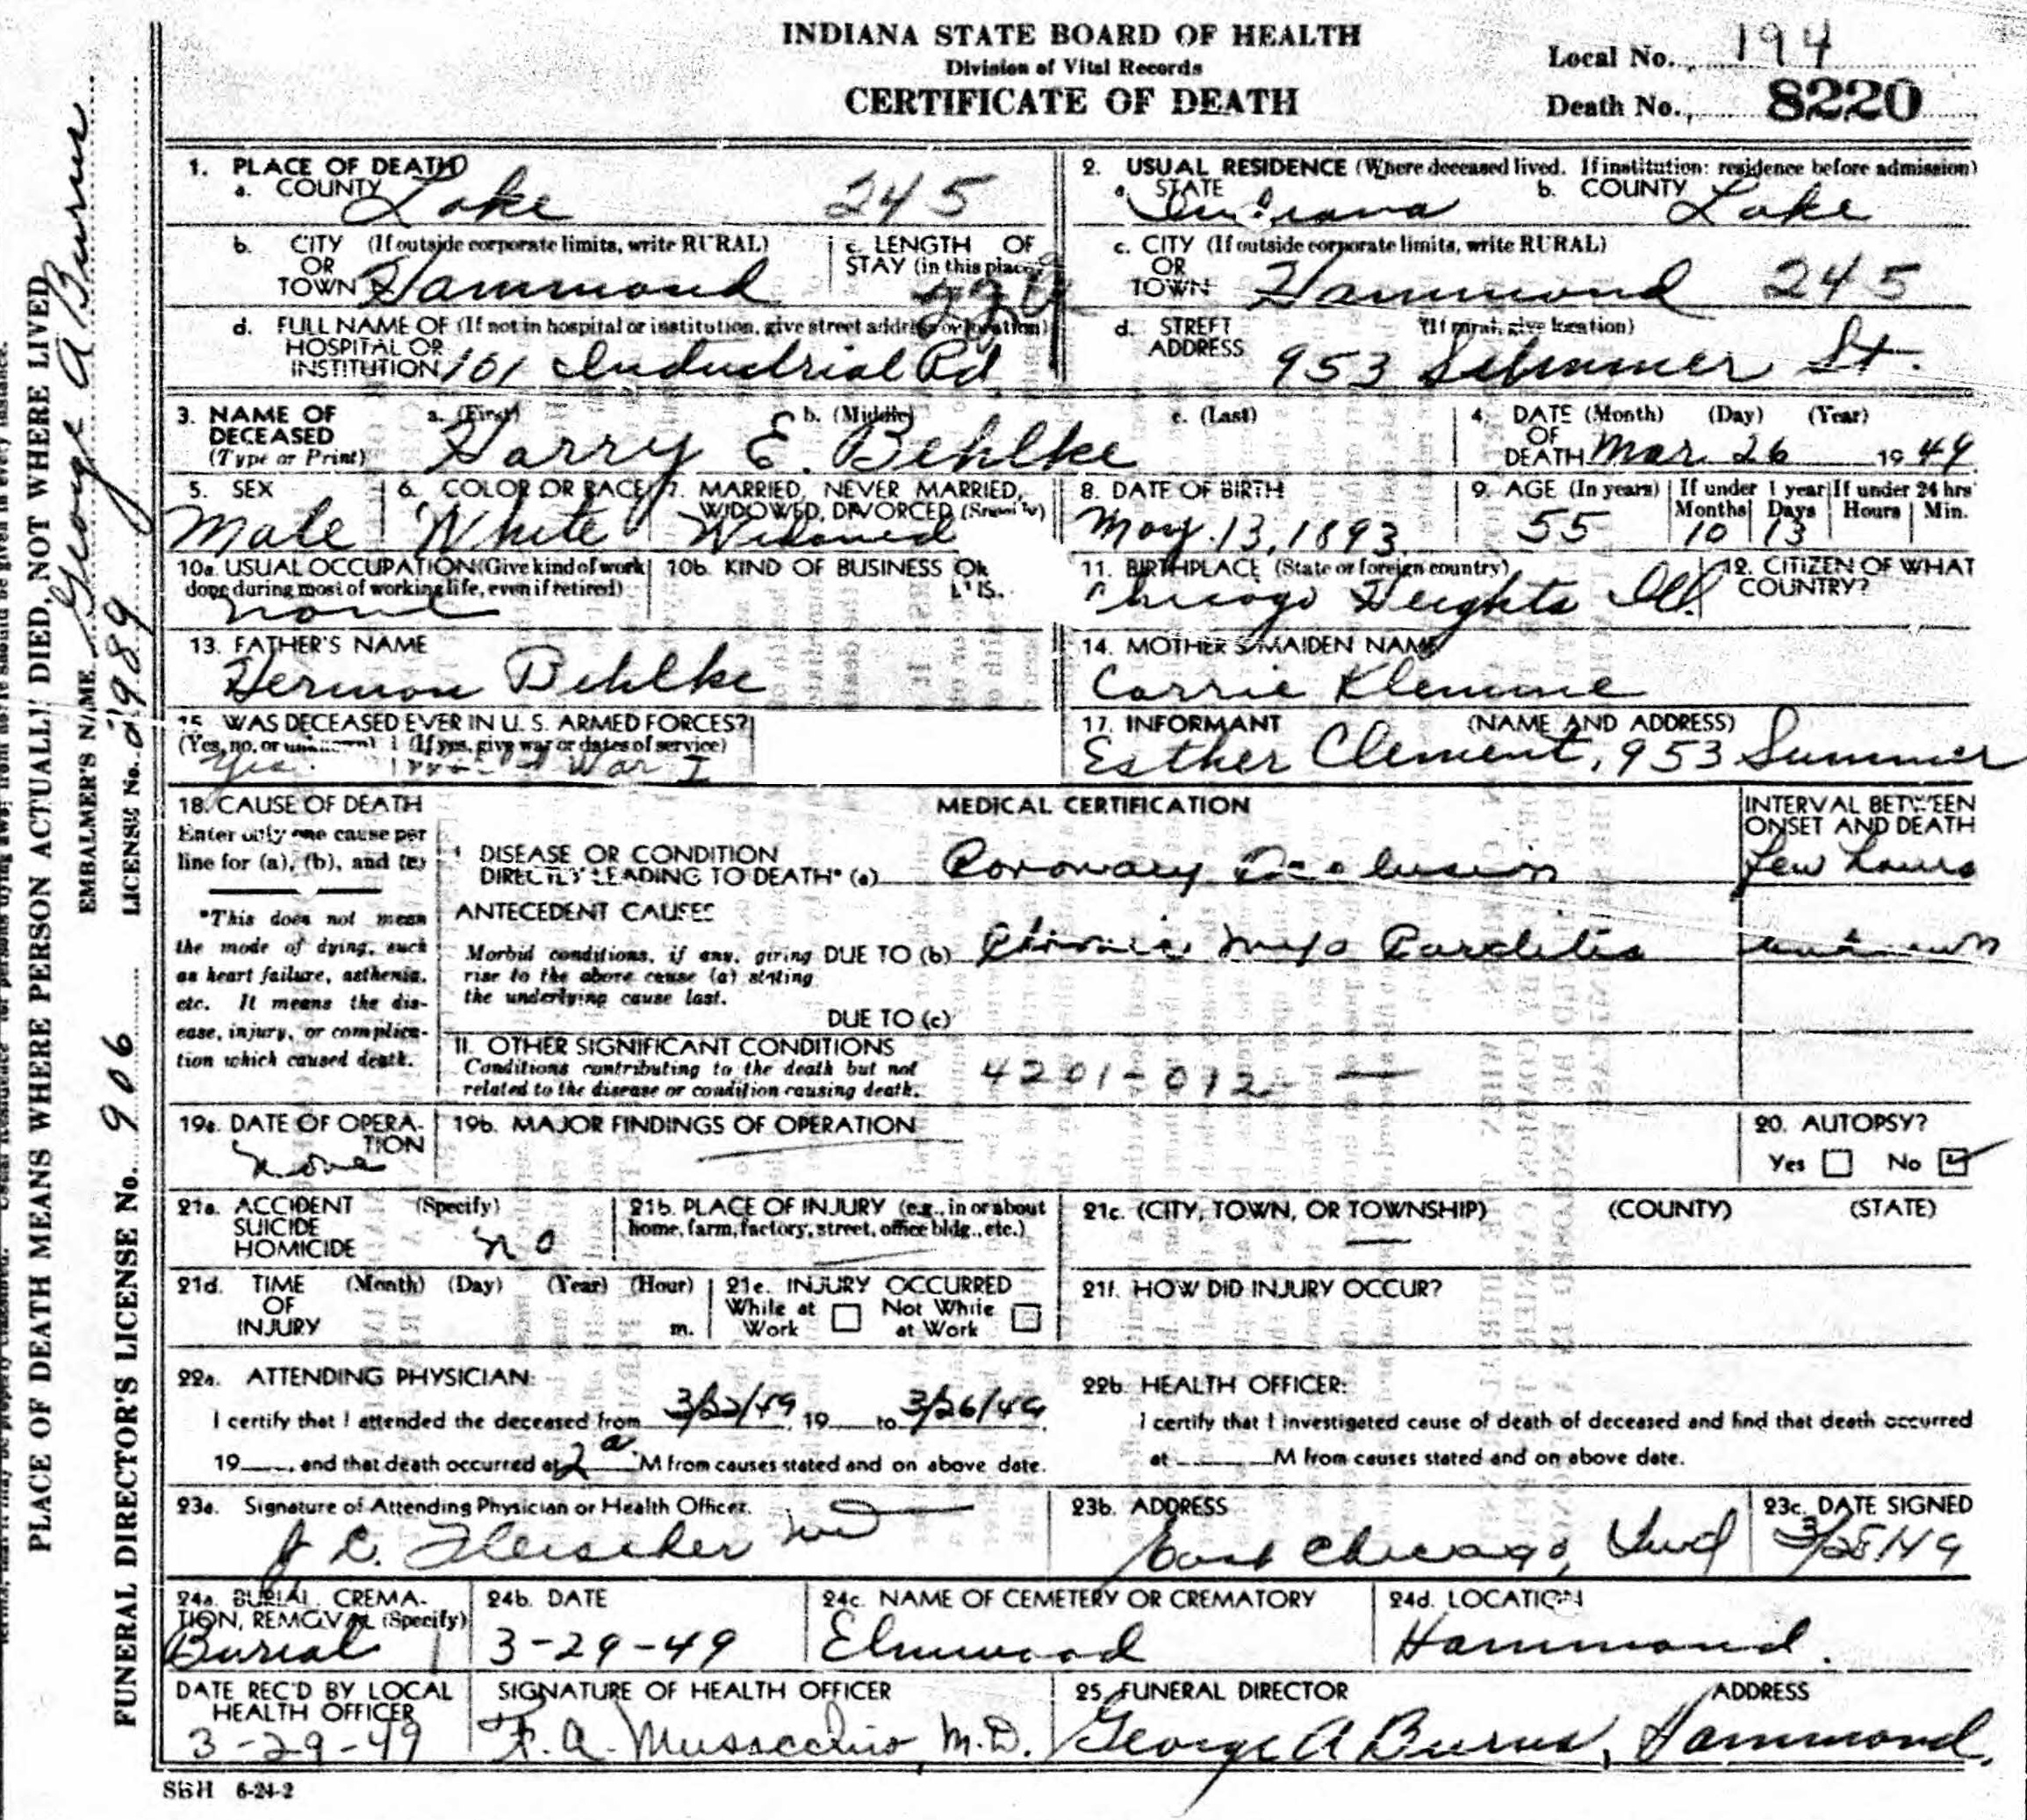 INDIANA STATE BOARD OF HEALTH
Division of Vital Records
CERTIFICATE OF DEATH
Local No. 194
Death No. 8220
1. PLACE OF DEATH
a. COUNTY Lake 245
b. CITY (If outside corporate limits, write RURAL) OR TOWN Hammond
c. LENGTH OF STAY (in this place)
d. FULL NAME OF (If not in hospital or institution, give street address or location) HOSPITAL OR INSTITUTION 101 Industrial Rd
2. USUAL RESIDENCE (Where deceased lived. If institution: residence before admission)
a. STATE Indiana b. COUNTY Lake
c. CITY (If outside corporate limits, write RURAL) OR TOWN Hammond 245
d. STREET ADDRESS (If rural, give location) 953 Summer St.
3. NAME OF DECEASED (Type or Print) a. (First) b. (Middle) c. (Last)
Harry E. Behlke
4. DATE OF DEATH (Month) (Day) (Year) Mar. 26 1949
5. SEX Male
6. COLOR OR RACE White
7. MARRIED, NEVER MARRIED, WIDOWED, DIVORCED (Specify) Widowed
8. DATE OF BIRTH May. 13, 1893
9. AGE (In years) 55 If under 1 year Months 10 Days 13 If under 24 hrs Hours Min.
10a. USUAL OCCUPATION (Give kind of work done during most of working life, even if retired) none
10b. KIND OF BUSINESS OR
11. BIRTHPLACE (State or foreign country) Chicago Heights Ill.
12. CITIZEN OF WHAT COUNTRY?
13. FATHER'S NAME
Herman Behlke
14. MOTHER'S MAIDEN NAME
Carrie Klemme
15. WAS DECEASED EVER IN U. S. ARMED FORCES?
(Yes, no, or unknown) (If yes, give war or dates of service)
Yes. War I
17. INFORMANT (NAME AND ADDRESS)
Esther Clement, 953 Summer
18. CAUSE OF DEATH
Enter only one cause per line for (a), (b), and (c)
*This does not mean the mode of dying, such as heart failure, asthenia, etc. It means the disease, injury, or complication which caused death.
MEDICAL CERTIFICATION
INTERVAL BETWEEN ONSET AND DEATH
I DISEASE OR CONDITION DIRECTLY LEADING TO DEATH* (a) Coronary Occlusion few hours
ANTECEDENT CAUSES
Morbid conditions, if any, giving rise to the above cause (a) stating the underlying cause last.
DUE TO (b) Chronic Myo Carditis unknown
DUE TO (c)
II. OTHER SIGNIFICANT CONDITIONS
Conditions contributing to the death but not related to the disease or condition causing death.
4201-072-
19a. DATE OF OPERATION None
19b. MAJOR FINDINGS OF OPERATION
20. AUTOPSY?
Yes No
21a. ACCIDENT SUICIDE HOMICIDE (Specify) No
21b. PLACE OF INJURY (e.g., in or about home, farm, factory, street, office bldg., etc.)
21c. (CITY, TOWN, OR TOWNSHIP) (COUNTY) (STATE)
21d. TIME OF INJURY (Month) (Day) (Year) (Hour) m.
21e. INJURY OCCURRED
While at Work Not While at Work
21f. HOW DID INJURY OCCUR?
22a. ATTENDING PHYSICIAN:
I certify that I attended the deceased from 3/22/49, 19 to 3/26/49,
19 , and that death occurred at 2 a. M from causes stated and on above date.
22b. HEALTH OFFICER:
I certify that I investigated cause of death of deceased and find that death occurred
at M from causes stated and on above date.
23a. Signature of Attending Physician or Health Officer.
J C. Fleischer MD
23b. ADDRESS
East Chicago, Ind
23c. DATE SIGNED
3/28/49
24a. BURIAL, CREMATION, REMOVAL (Specify) Burial
24b. DATE 3-29-49
24c. NAME OF CEMETERY OR CREMATORY Elmwood
24d. LOCATION Hammond.
DATE REC'D BY LOCAL HEALTH OFFICER 3-29-49
SIGNATURE OF HEALTH OFFICER
F. A. Musacchio, M.D.
25. FUNERAL DIRECTOR ADDRESS
George A Burns, Hammond.
SBH 6-24-2
PLACE OF DEATH MEANS WHERE PERSON ACTUALLY DIED, NOT WHERE LIVED
EMBALMER'S NAME George A Burns
FUNERAL DIRECTOR'S LICENSE No. 906 LICENSE No. 2989